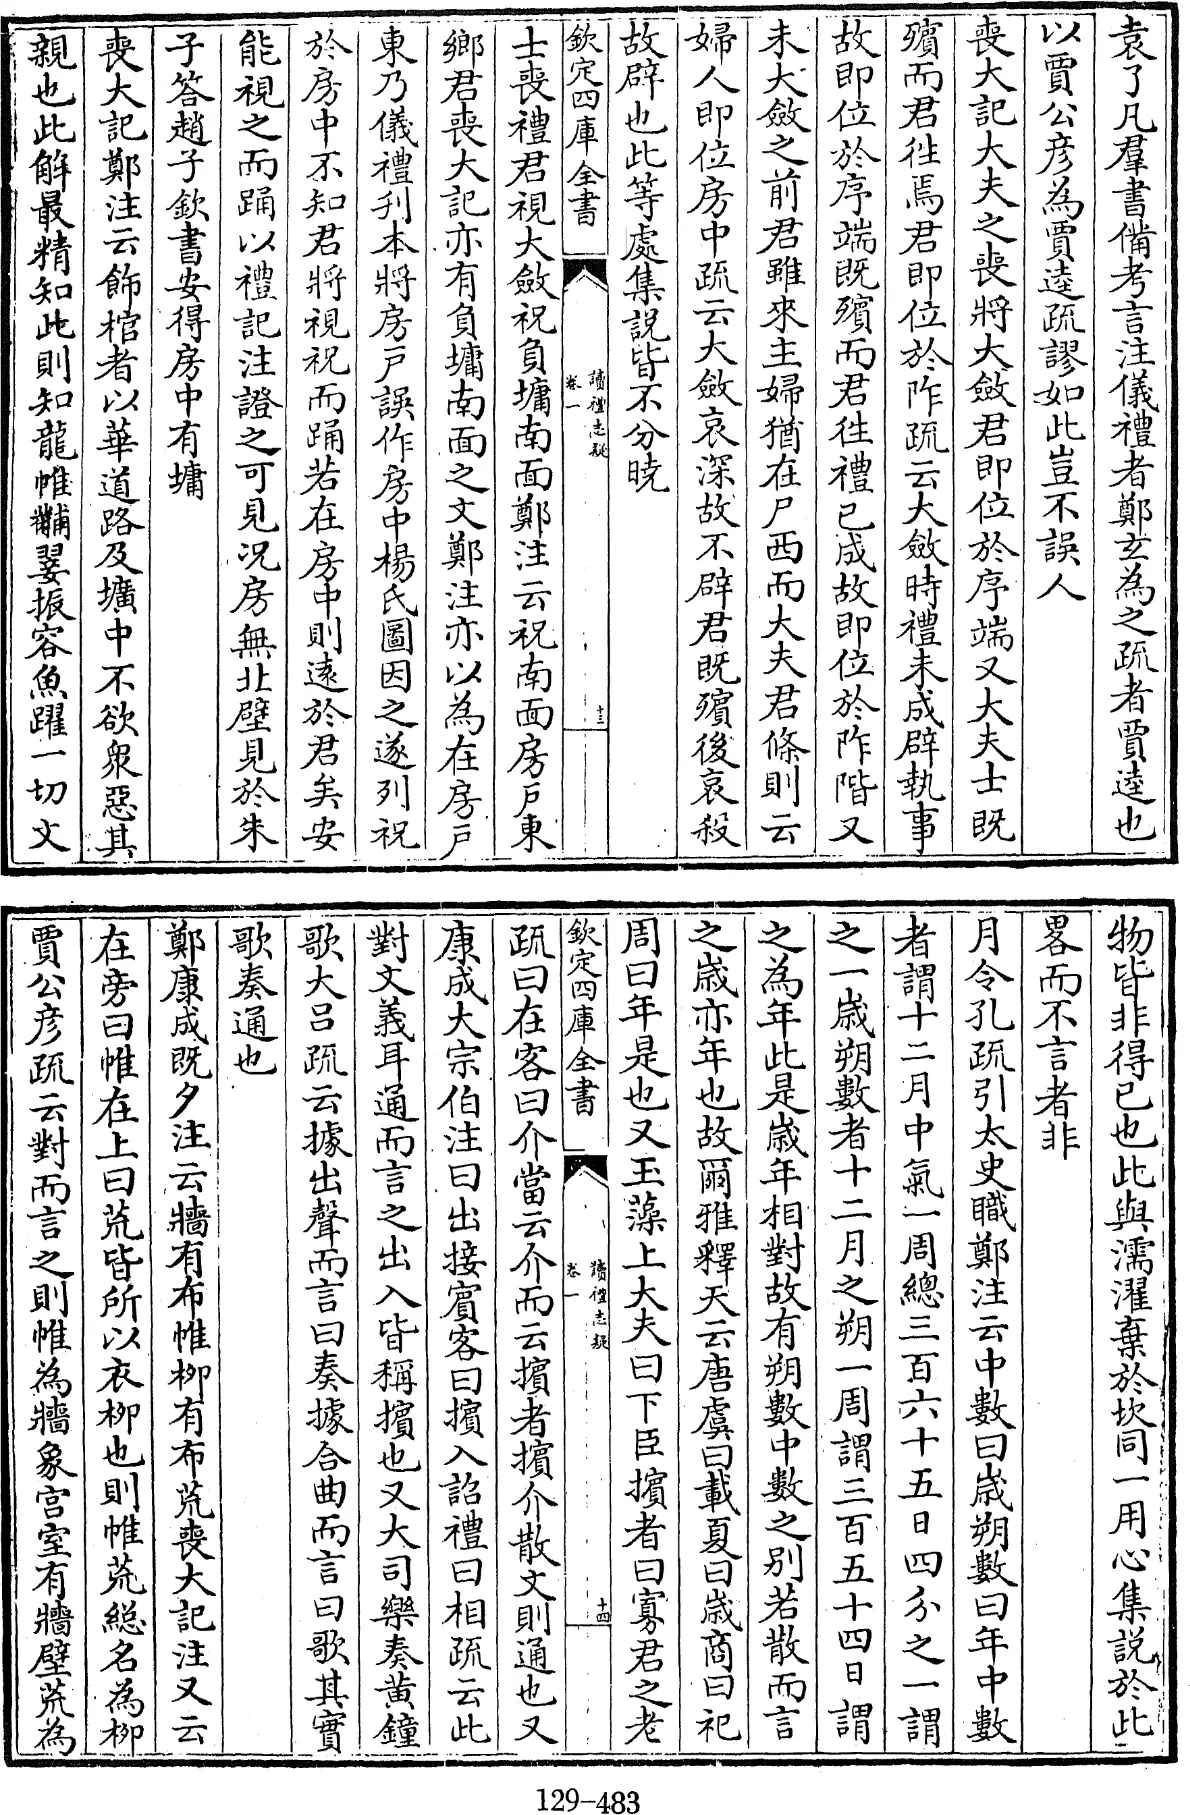 袁了凡羣書備考言注儀禮者鄭玄為之疏者賈逵也
以賈公彦為賈逵疏謬如此豈不誤人
喪大記大夫之喪將大斂君即位於序端又大夫士既
殯而君徃焉君即位於阼疏云大斂時禮未成辟執事
故即位於序端既殯而君徃禮已成故即位於阼階又
未大斂之前君雖來主婦猶在尸西而大夫君條則云
婦人即位房中疏云大斂哀深故不辟君既殯後哀殺
故辟也此等處集説皆不分曉
欽定四庫全書
讀禮志疑
卷一
十三
士喪禮君視大斂祝負墉南面鄭注云祝南面房戶東
鄉君喪大記亦有負墉南面之文鄭注亦以為在房戶
東乃儀禮刋本將房戶誤作房中楊氏圖因之遂列祝
於房中不知君將視祝而踊若在房中則逺於君矣安
能視之而踊以禮記注證之可見况房無北壁見於朱
子答趙子欽書安得房中有墉
喪大記鄭注云飾棺者以華道路及壙中不欲衆惡其
親也此解最精知此則知龍帷黼翣振容魚躍一切文
物皆非得已也此與濡濯棄於坎同一用心集説於此
畧而不言者非
月令孔疏引太史職鄭注云中數曰嵗朔數曰年中數
者謂十二月中氣一周總三百六十五日四分之一謂
之一嵗朔數者十二月之朔一周謂三百五十四日謂
之為年此是嵗年相對故有朔數中數之别若散而言
之嵗亦年也故爾雅釋天云唐虞曰載夏曰嵗商曰祀
周曰年是也又玉藻上大夫曰下臣擯者曰寡君之老
欽定四庫全書
讀禮志疑
卷一
十四
疏曰在客曰介當云介而云擯者擯介散文則通也又
康成大宗伯注曰出接賓客曰擯入詔禮曰相疏云此
對文義耳通而言之出入皆稱擯也又大司樂奏黄鐘
歌大吕疏云據出聲而言曰奏據合曲而言曰歌其實
歌奏通也
鄭康成既夕注云牆有布帷柳有布荒喪大記注又云
在旁曰帷在上曰荒皆所以衣柳也則帷荒總名為柳
賈公彦疏云對而言之則帷為牆象宫室有牆壁荒為
129-483